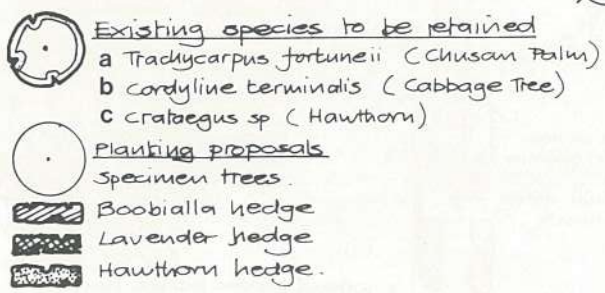 Existing species to be retained
a Trachycarpus fortuneii (Chusan Palm)
b cordyline terminalis (Cabbage Tree)
c Crataegus sp (Hawthorn)
Planting proposals
Specimen trees.
Boobialla hedge
Lavender hedge
Hawthorn hedge.